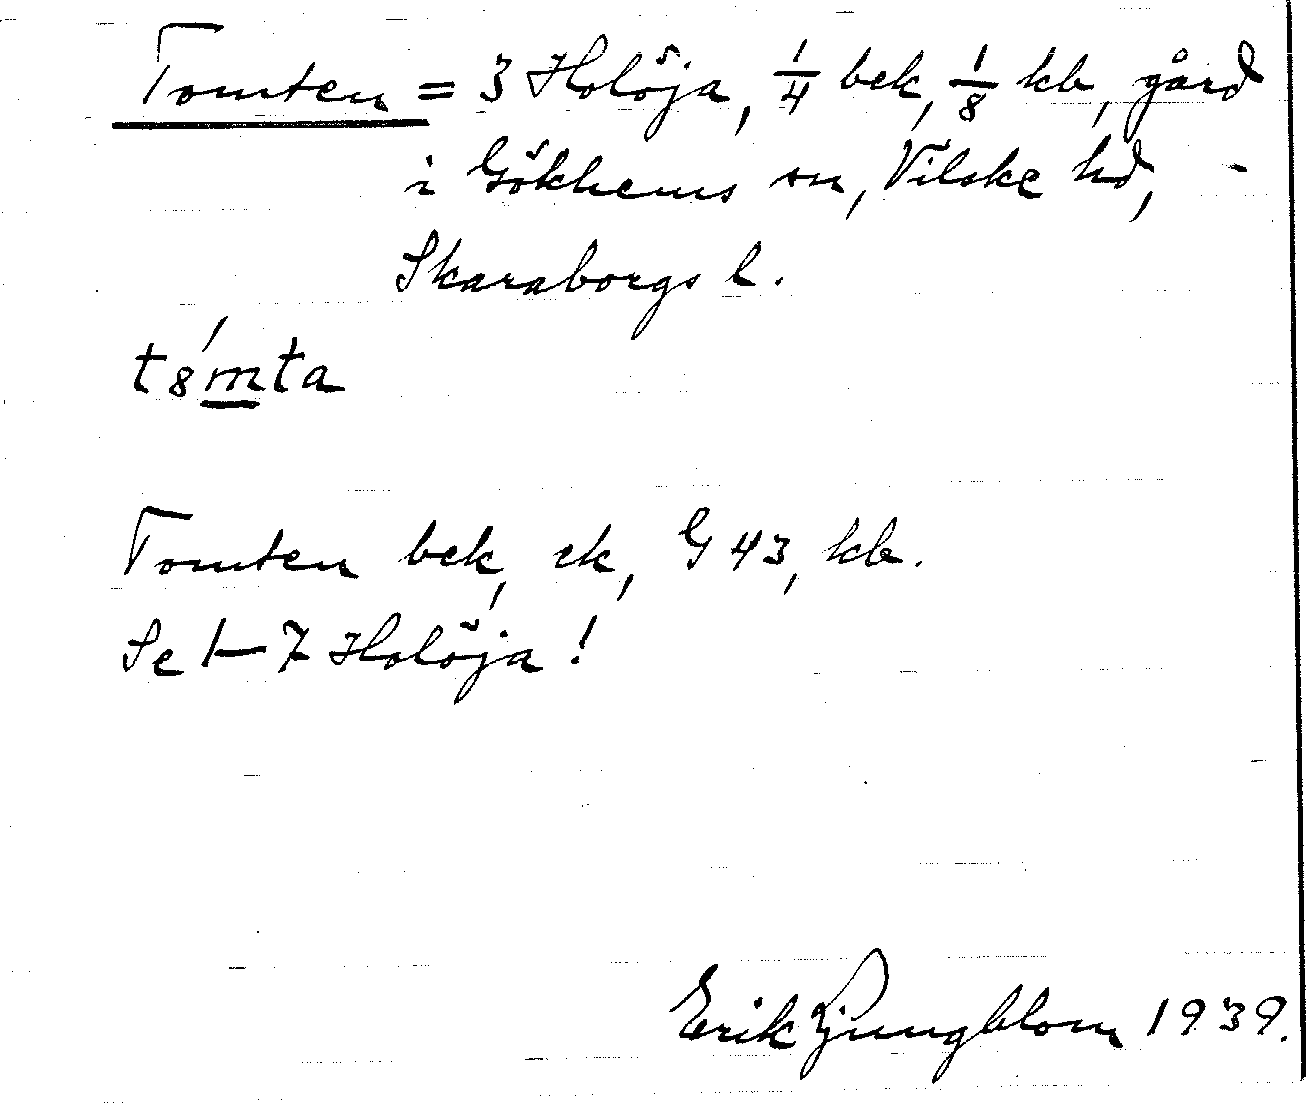 Tomten = 3 Holöja, 1/4 bek, 1/8 kb, gård
i Gökhems sn, Vilske hd, -
Skaraborgs l.
t8́mta
Tomten bek, ek, G 43, kb.
Se 1–7 Holöja!
Erik Ljungblom 1939.